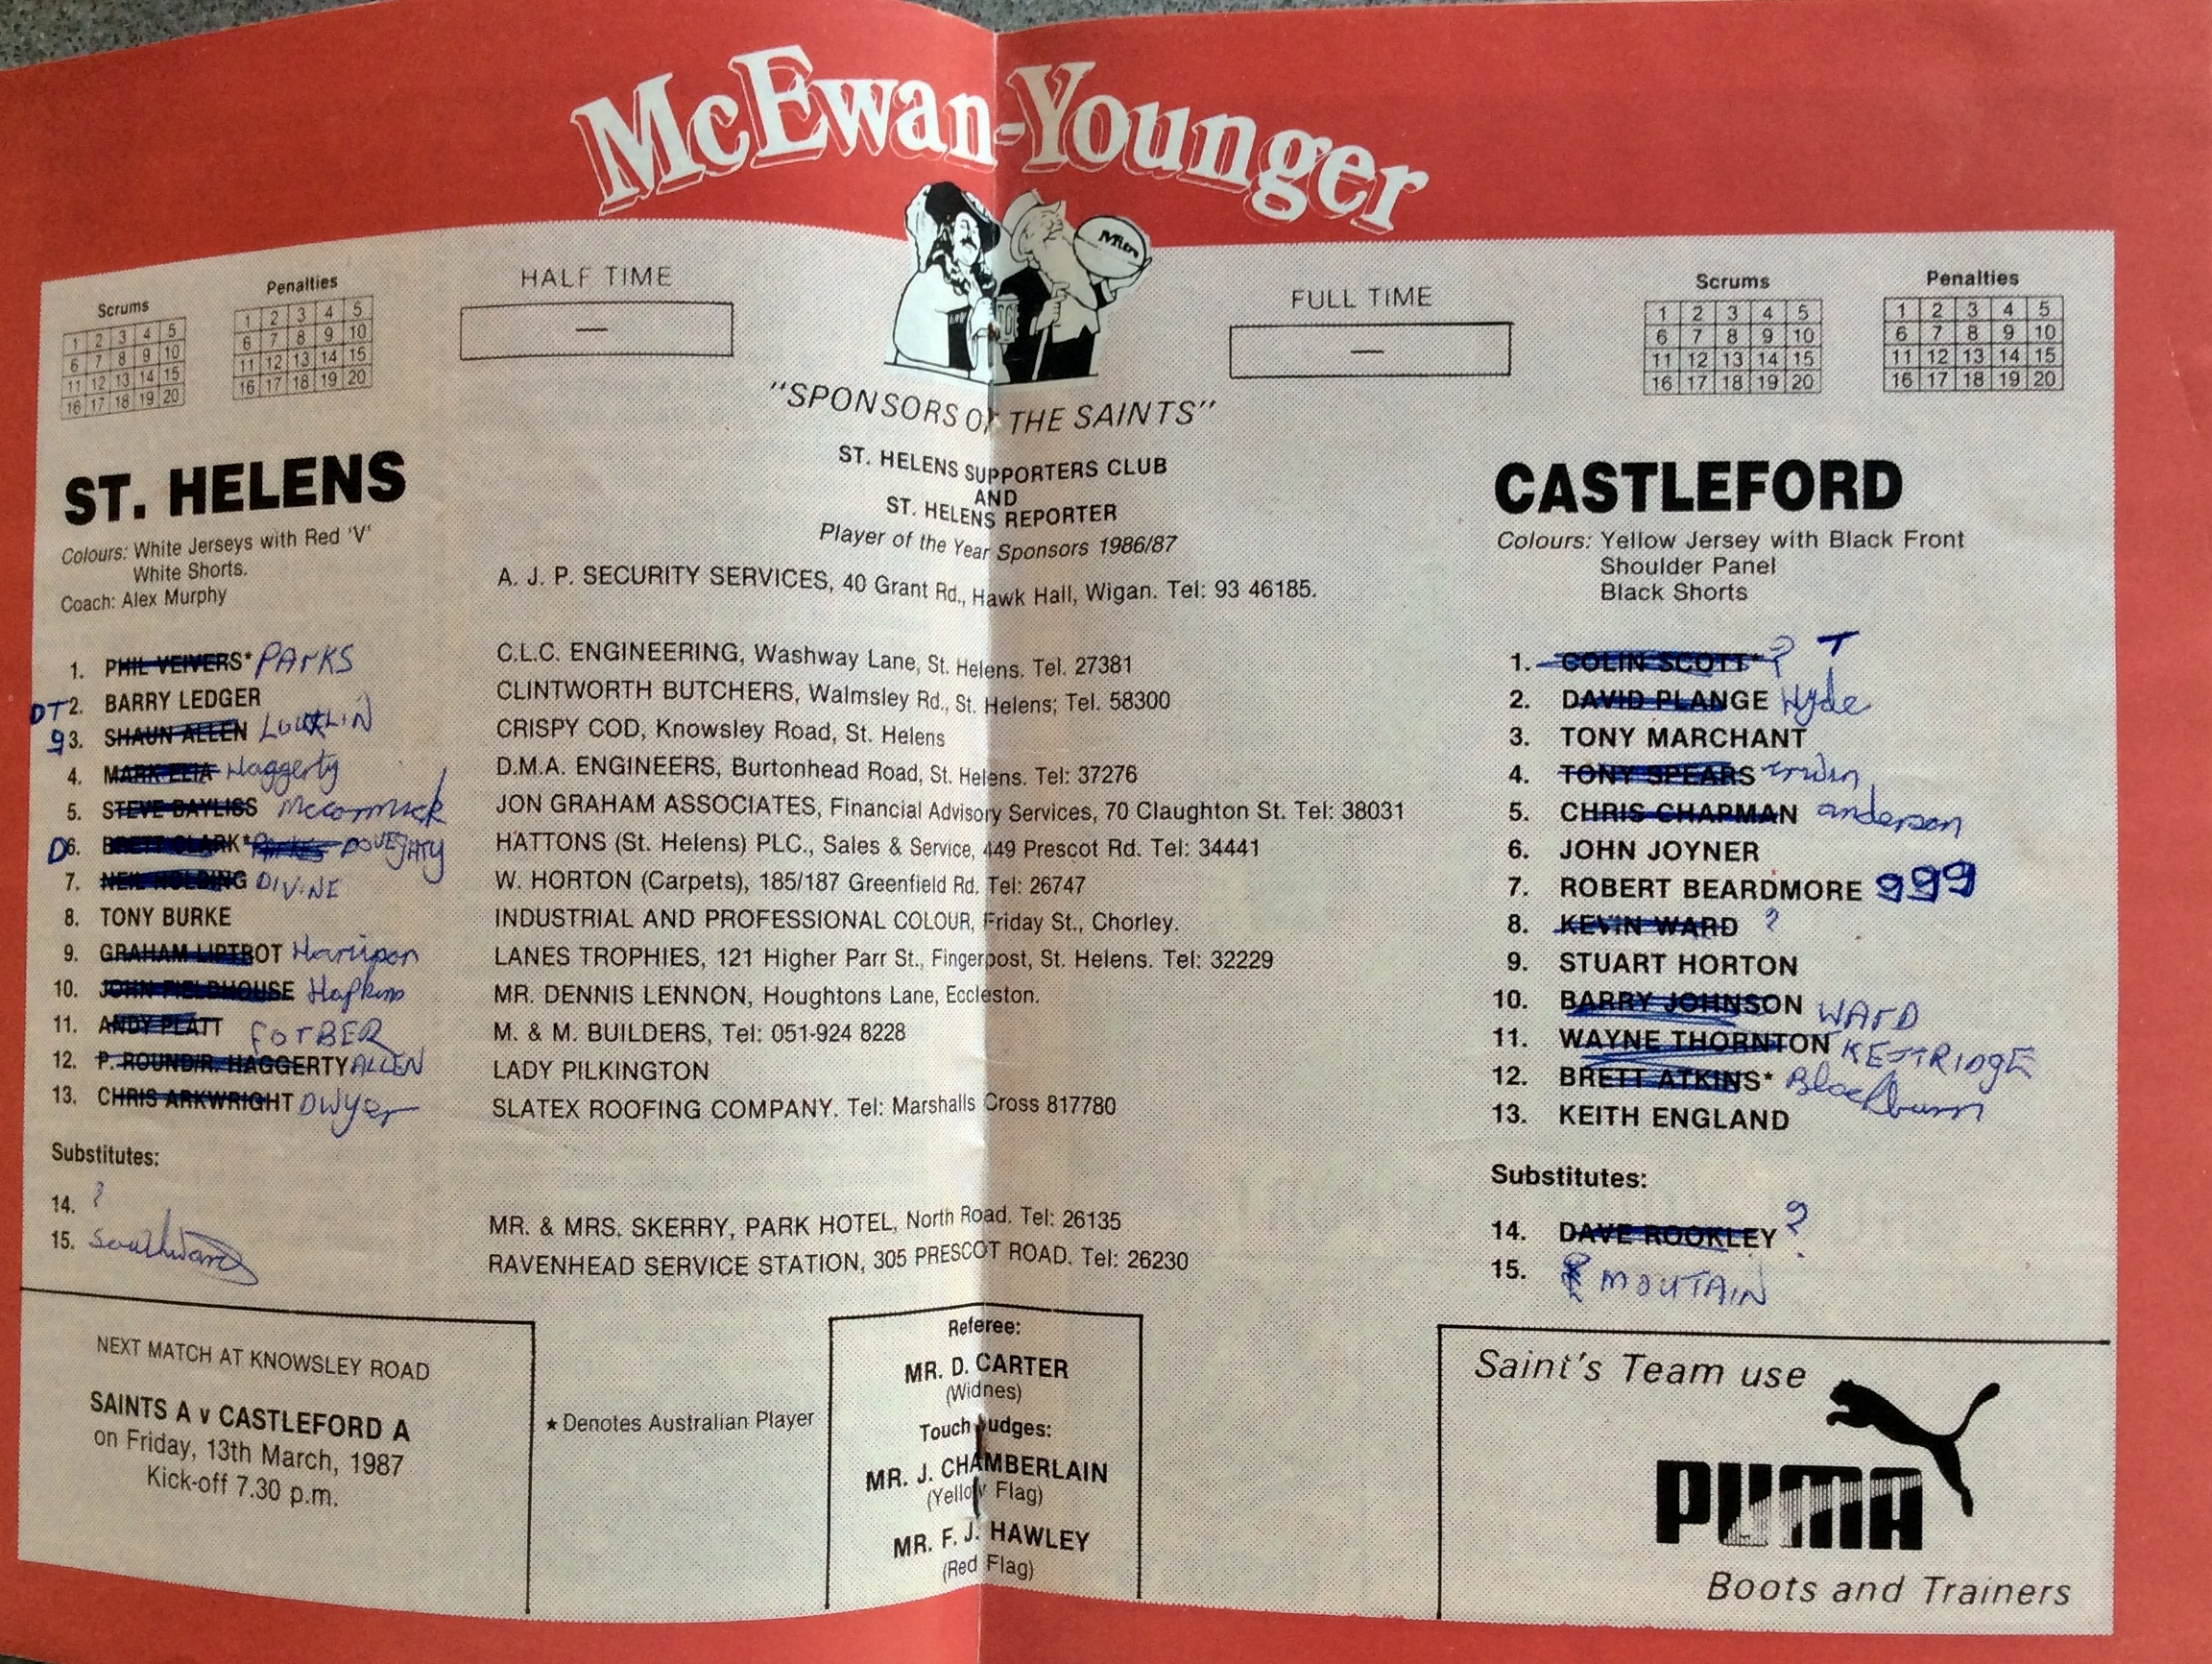 McEwan-Younger
Mitre
Scrums
1 2 3 4 5
6 7 8 9 10
11 12 13 14 15
16 17 18 19 20
Penalties
1 2 3 4 5
6 7 8 9 10
11 12 13 14 15
16 17 18 19 20
HALF TIME
—
FULL TIME
—
Scrums
1 2 3 4 5
6 7 8 9 10
11 12 13 14 15
16 17 18 19 20
Penalties
1 2 3 4 5
6 7 8 9 10
11 12 13 14 15
16 17 18 19 20
"SPONSORS OF THE SAINTS"
ST. HELENS SUPPORTERS CLUB
AND
ST. HELENS REPORTER
Player of the Year Sponsors 1986/87
A. J. P. SECURITY SERVICES, 40 Grant Rd., Hawk Hall, Wigan. Tel: 93 46185.
ST. HELENS
Colours: White Jerseys with Red 'V'
White Shorts.
Coach: Alex Murphy
1. PHIL VEIVERS* PARKS
DT 2. BARRY LEDGER
9 3. SHAUN ALLEN LOUGHLIN
4. MARK ELIA Haggerty
5. STEVE BAYLISS McCormick
D 6. BRETT CLARK* DOUGHTY
7. NEIL HOLDING DIVINE
8. TONY BURKE
9. GRAHAM LIPTROT Harrison
10. JOHN FIELDHOUSE Hopkins
11. ANDY PLATT FORBER
12. P. ROUND/R. HAGGERTY ALLEN
13. CHRIS ARKWRIGHT Dwyer
Substitutes:
14. ?
15. Southward
C.L.C. ENGINEERING, Washway Lane, St. Helens. Tel. 27381
CLINTWORTH BUTCHERS, Walmsley Rd., St. Helens; Tel. 58300
CRISPY COD, Knowsley Road, St. Helens
D.M.A. ENGINEERS, Burtonhead Road, St. Helens. Tel: 37276
JON GRAHAM ASSOCIATES, Financial Advisory Services, 70 Claughton St. Tel: 38031
HATTONS (St. Helens) PLC., Sales & Service, 449 Prescot Rd. Tel: 34441
W. HORTON (Carpets), 185/187 Greenfield Rd. Tel: 26747
INDUSTRIAL AND PROFESSIONAL COLOUR, Friday St., Chorley.
LANES TROPHIES, 121 Higher Parr St., Fingerpost, St. Helens. Tel: 32229
MR. DENNIS LENNON, Houghtons Lane, Eccleston.
M. & M. BUILDERS, Tel: 051-924 8228
LADY PILKINGTON
SLATEX ROOFING COMPANY. Tel: Marshalls Cross 817780
MR. & MRS. SKERRY, PARK HOTEL, North Road. Tel: 26135
RAVENHEAD SERVICE STATION, 305 PRESCOT ROAD. Tel: 26230
CASTLEFORD
Colours: Yellow Jersey with Black Front
Shoulder Panel
Black Shorts
1. COLIN SCOTT* ? T
2. DAVID PLANGE Hyde
3. TONY MARCHANT
4. TONY SPEARS irwin
5. CHRIS CHAPMAN anderson
6. JOHN JOYNER
7. ROBERT BEARDMORE 999
8. KEVIN WARD ?
9. STUART HORTON
10. BARRY JOHNSON WARD
11. WAYNE THORNTON KETTRIDGE
12. BRETT ATKINS* Blackburn
13. KEITH ENGLAND
Substitutes:
14. DAVE ROOKLEY ?
15. MOUTAIN
NEXT MATCH AT KNOWSLEY ROAD
SAINTS A v CASTLEFORD A
on Friday, 13th March, 1987
Kick-off 7.30 p.m.
★ Denotes Australian Player
Referee:
MR. D. CARTER
(Widnes)
Touch Judges:
MR. J. CHAMBERLAIN
(Yellow Flag)
MR. F. J. HAWLEY
(Red Flag)
Saint's Team use
PUMA
Boots and Trainers